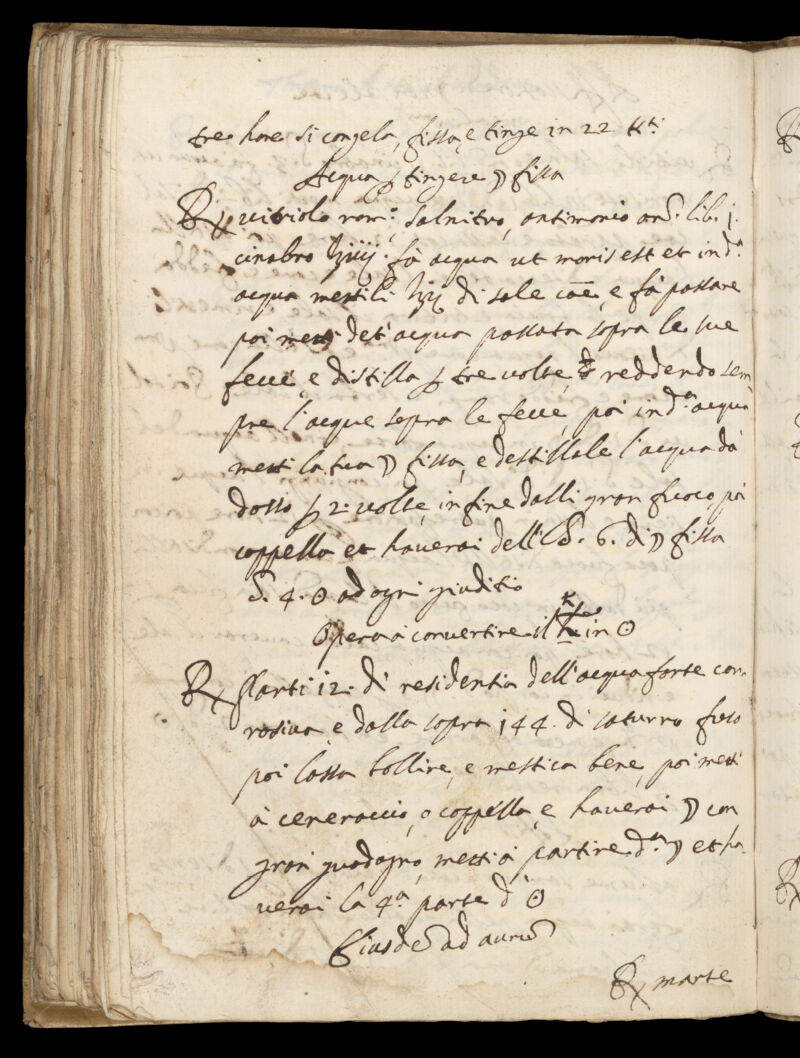 tre hore si congela, fissa, e tinge in 22 Kti
Acqua p tingere ☽ fissa
℞ vitriolo rom.º salnitro, antimonio an̄. lib. j.
cinabro ℥iiij. fà acqua ut moris est et in d.ª
acqua metti li ℥ij di sole cōe, e fà passare
poi metti det' acqua passata sopra le sue
fecci, e distilla p tre volte, reddendo sem
pre l'acque sopra le fecci, poi in d.ª acqua
metti la tua ☽ fissa, e destillale l'acqua da
dosso p 2. volte, in fine dalli gran fuoco, poi
coppella et haverai dell' 6. di ☽ fissa
4. ☉ ad ogni giuditio
Opera à convertire il ♄ in ☉
℞ Parti 12. di residentia dell'acqua forte cor
rosiva e dalla sopra 144. di saturno fuso
poi lassa bollire, e mestica bene, poi metti
à ceneraccio, o coppella, e haverai ☽ con
gran guadagno, metti à partire d.ª ☽ et ha
verai la 4.ª parte d' ☉
Eiusdē ad aurū
℞ marte